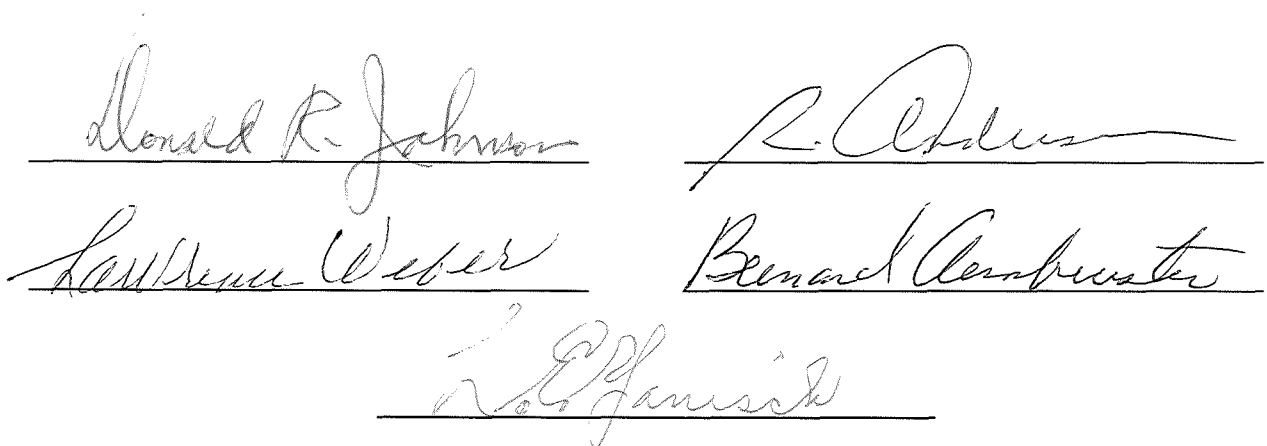 Donald R. Johnson R. Anderson
Lawrence Weber Bernard Armbruster
L. E. Janisch